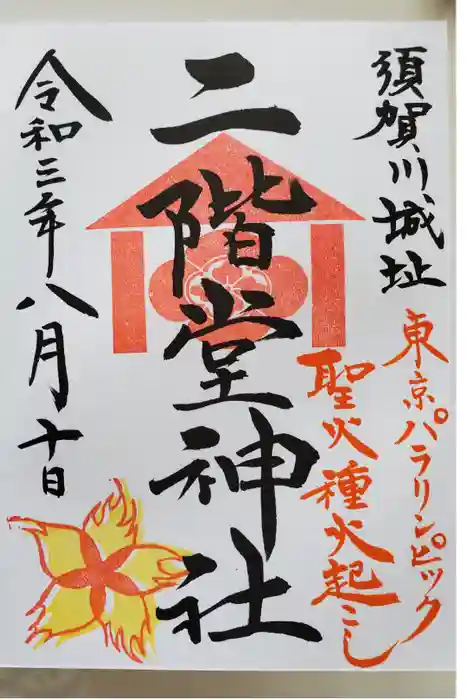 須賀川城址
東京パラリンピック
聖火種火起こし
二階堂神社
令和三年八月十日